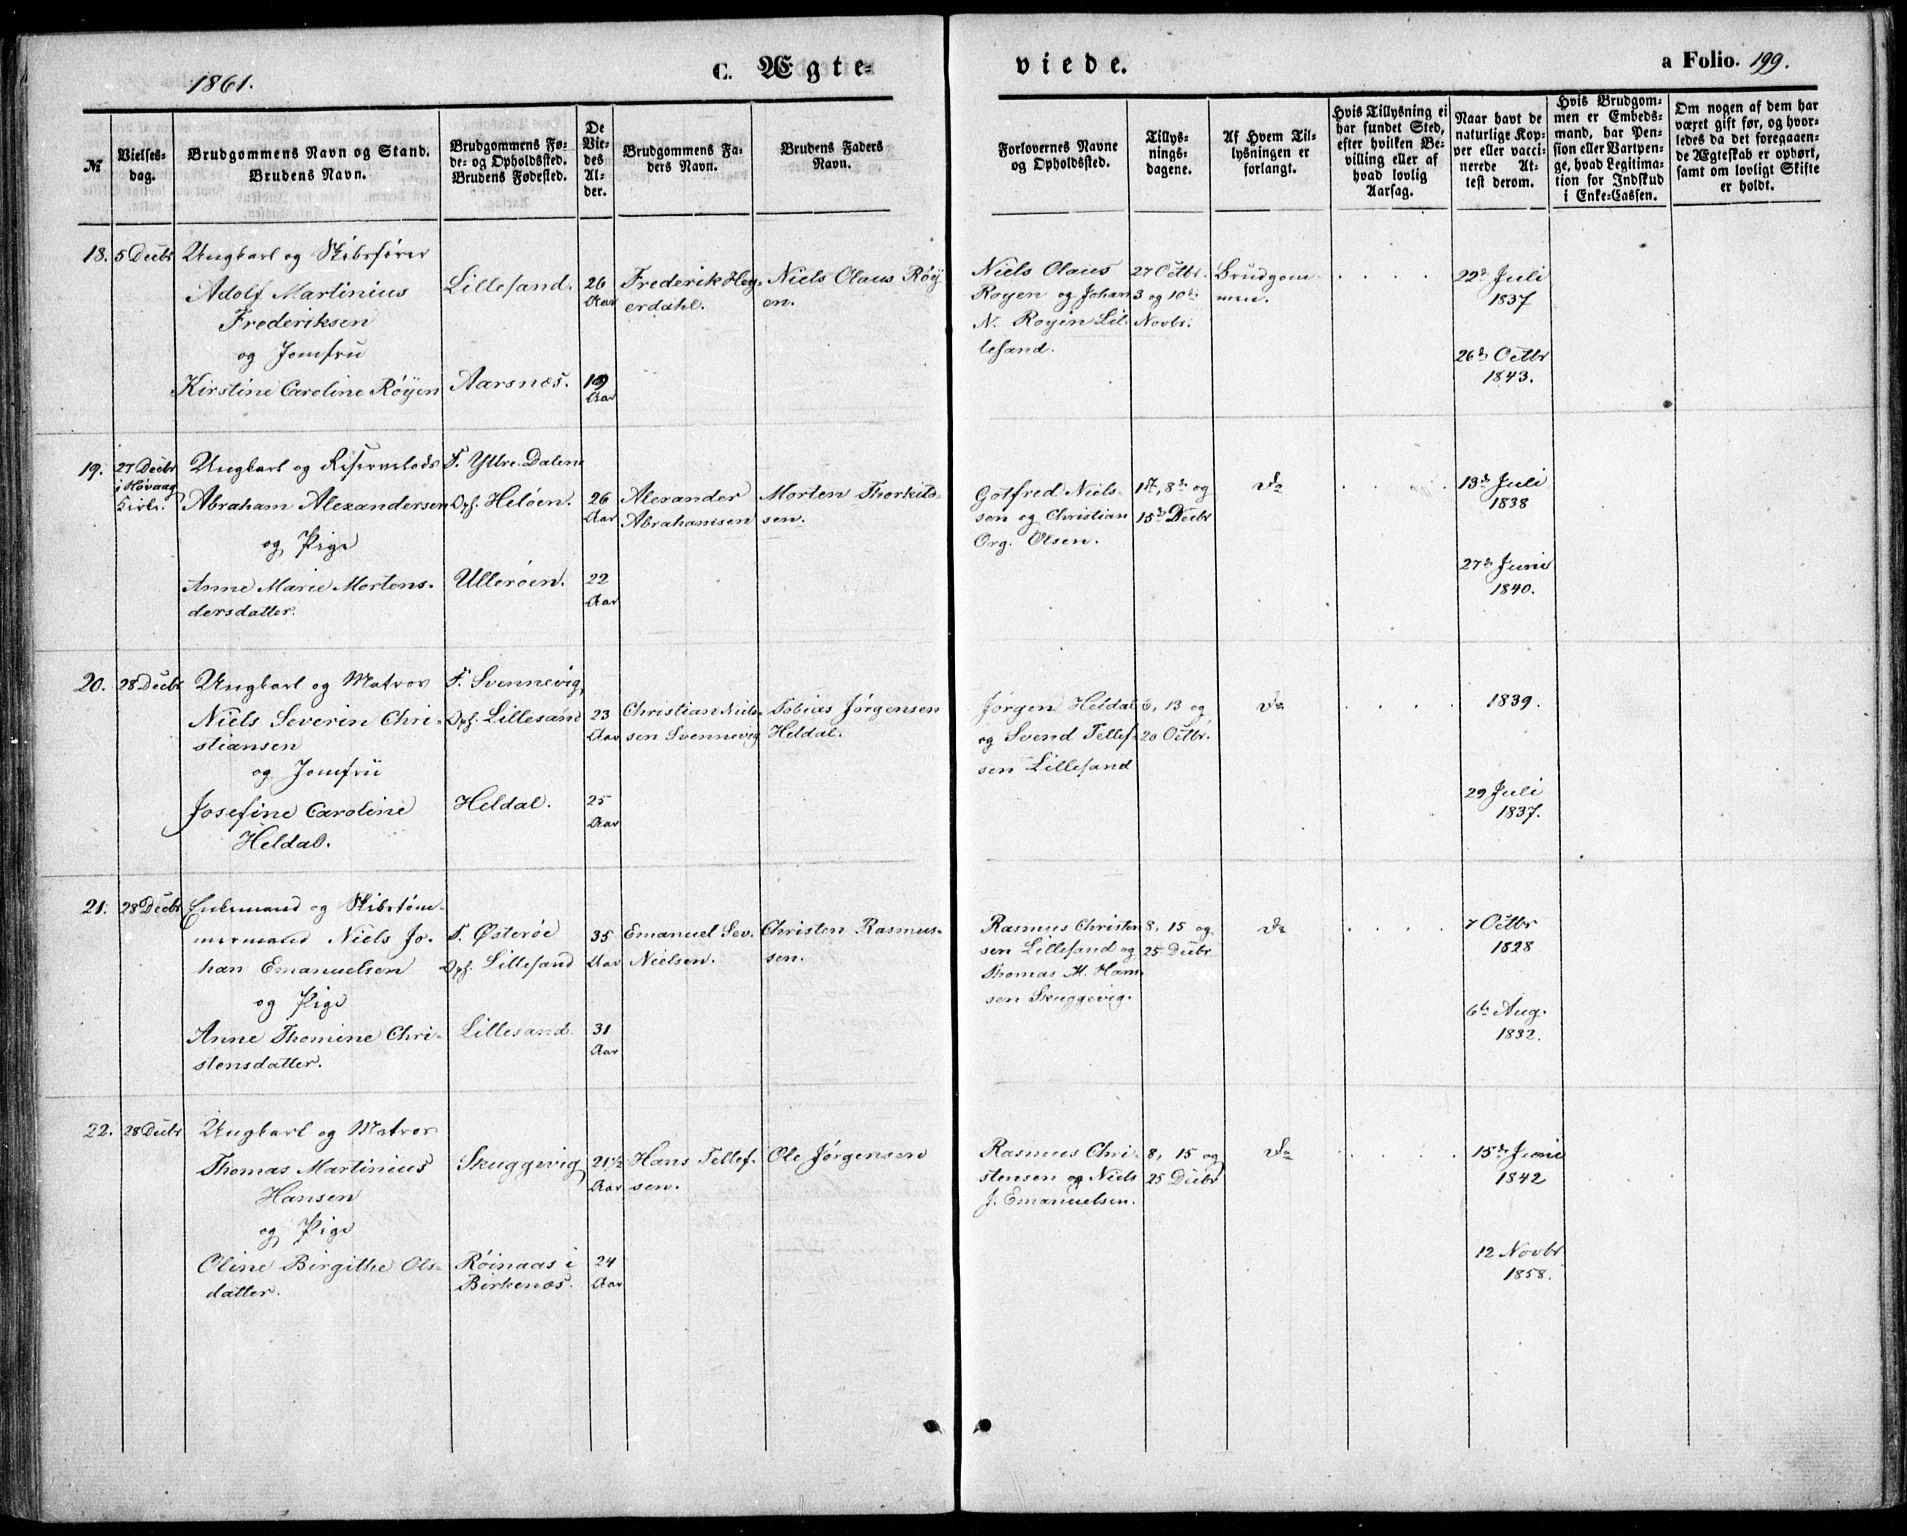 1861.
C. Ægte=
viede.
a Folio. 199.
№
Vielses-
dag.
Brudgommens Navn og Stand.
Brudens Navn.
Brudgommens Fø-
de- og Opholdssted.
Brudens Fødested.
De
Vie-
des
Al-
der.
Brudgommens Fa-
ders Navn.
Brudens Faders
Navn.
Forlovernes Navne
og Opholdssted.
Tillys-
nings-
dagene.
Af Hvem Til-
lysningen er
forlangt.
Hvis Tillysning ei
har fundet Sted,
efter hvilken Be-
villing eller af
hvad lovlig
Aarsag.
Naar havt de
naturlige Kop-
per eller vacci-
nerede At-
test derom.
Hvis Brudgom-
men er Embeds-
mand, har Pen-
sion eller Vartpen-
ge, hvad Legitima-
tion for Indskud
i Enke-Cassen.
Om nogen af dem har
været gift før, og hvor-
ledes da det foregaaen-
de Ægteskab er ophørt,
samt om lovligt Skifte
er holdt.
18.
5 Decbr
Ungkarl og Skibsfører
Adolf Martinius
Frederiksen
og Jomfru
Kirstine Caroline Røyen
Lillesand.
Aarsnæs.
26
Aar
19
Aar
Frederik Hey-
erdahl.
Niels Olaus Røy
en.
Niels Olaus
Royen og Johan
N. Royen Lil-
lesand.
27 Octbr.
3 og 10de
Novbr.
Brudgom-
men.
22de Juli
1837
26de Octbr
1843.
19.
27 Decbr
i Høvaag
Kirke.
Ungkarl og Reservelods
Abraham Alexandersen
og Pige
Anne Marie Mortens-
dersdatter.
F. Yttre Dalene
Oph. Heløen.
Ullerøen.
26
Aar
22
Aar
Alexander
Abrahamsen
Morten Thorkils-
sen.
Gotfred Niels-
sen og Christian
Org. Olsen.
1st, 8de og
15de Decbr
Do
13de Juli
1838
27de Juni
1840.
20.
28 Decbr
Ungkarl og Matros
Niels Severin Chri-
stiansen
og Jomfru
Josefine Caroline
Heldal.
F. Svennevig,
Oph. Lillesand
Heldal.
23
Aar
25
Aar
Christian Niels-
sen Svennevig
Tobias Jørgensen
Heldal.
Jørgen Heldal
og Svend Tellef-
sen Lillesand
6, 13 og
20 Octbr.
Do
1839.
29 Juli
1837.
21.
28 Decbr
Enkemand og Skibstøm-
mermand Niels Jo-
han Emanuelsen
og Pige
Anne Thomine Chri-
stensdatter.
F. Østerøe
Oph. Lillesand
Lillesand.
35
Aar
31
Aar
Emanuel Sev.
Nielsen.
Christen Rasmus-
sen.
Rasmus Christen
sen Lillesand og
Thomas M. Han-
sen Skuggevig.
8, 15 og
25 Decbr
Do
7 Octbr
1828
6te Aug.
1832.
22.
28 Decbr
Ungkarl og Matros
Thomas Martinius
Hansen
og Pige
Oline Birgithe Ols-
datter.
Skuggevig
Røinaas i
Birkenæs.
21 1/2
Aar
24
Aar
Hans Tellef-
sen.
Ole Jørgensen
Rasmus Chri-
stensen og Niels
J. Emanuelsen.
8, 15 og
25 Decbr
Do
15de Juni
1842
12 Novbr
1858.